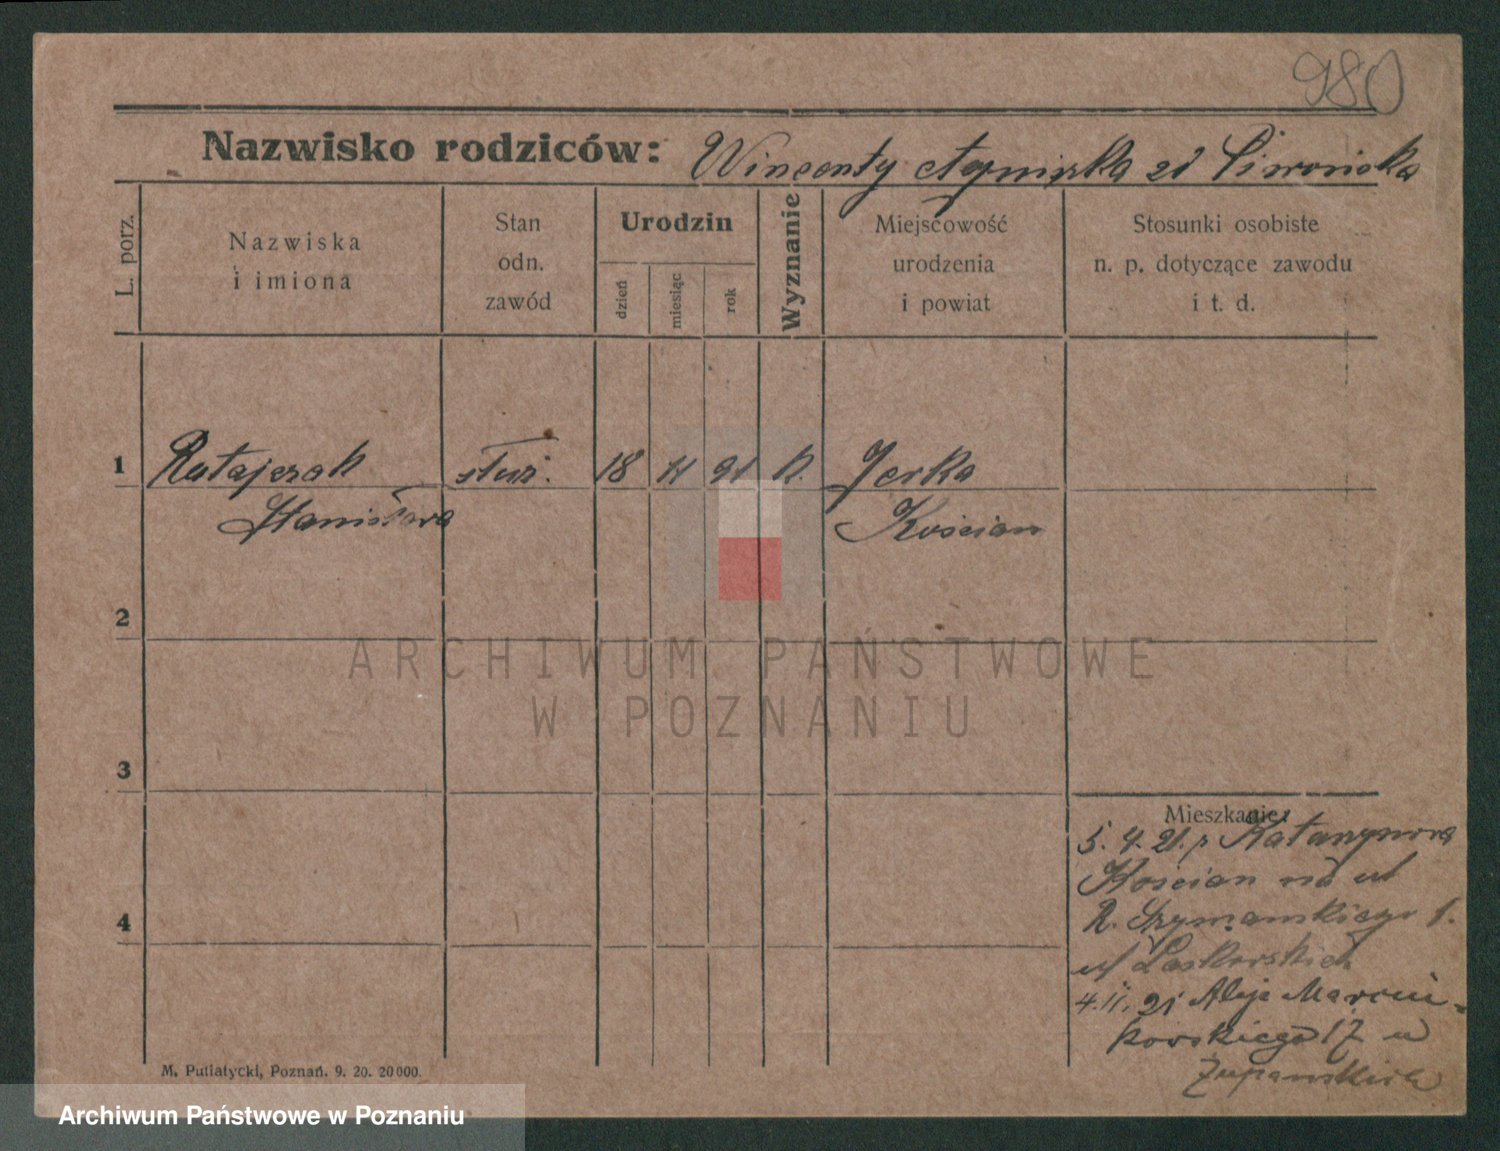 980
Nazwisko rodziców: Wincenty Agniszka zd Siwońska
L. porz.
Nazwiska
i imiona
Stan
odn.
zawód
Urodzin
dzień
miesiąc
rok
Wyznanie
Miejscowość
urodzenia
i powiat
Stosunki osobiste
n. p. dotyczące zawodu
i t. d.
1 Ratajczak służ. 18 91 k. Jerka
Stanisława Kościan
2
ARCHIWUM PAŃSTWOWE
W POZNANIU
3
4
Mieszkanie:
5. 4. 21. z Katarzynowa
Kościan na ul
R. Szymańskiego 1.
u Laskowskich
4. 11. 21 Aleje Marcin-
kowskiego 17 u
Żupańskich
M. Putiatycki, Poznań. 9. 20. 20000.
Archiwum Państwowe w Poznaniu